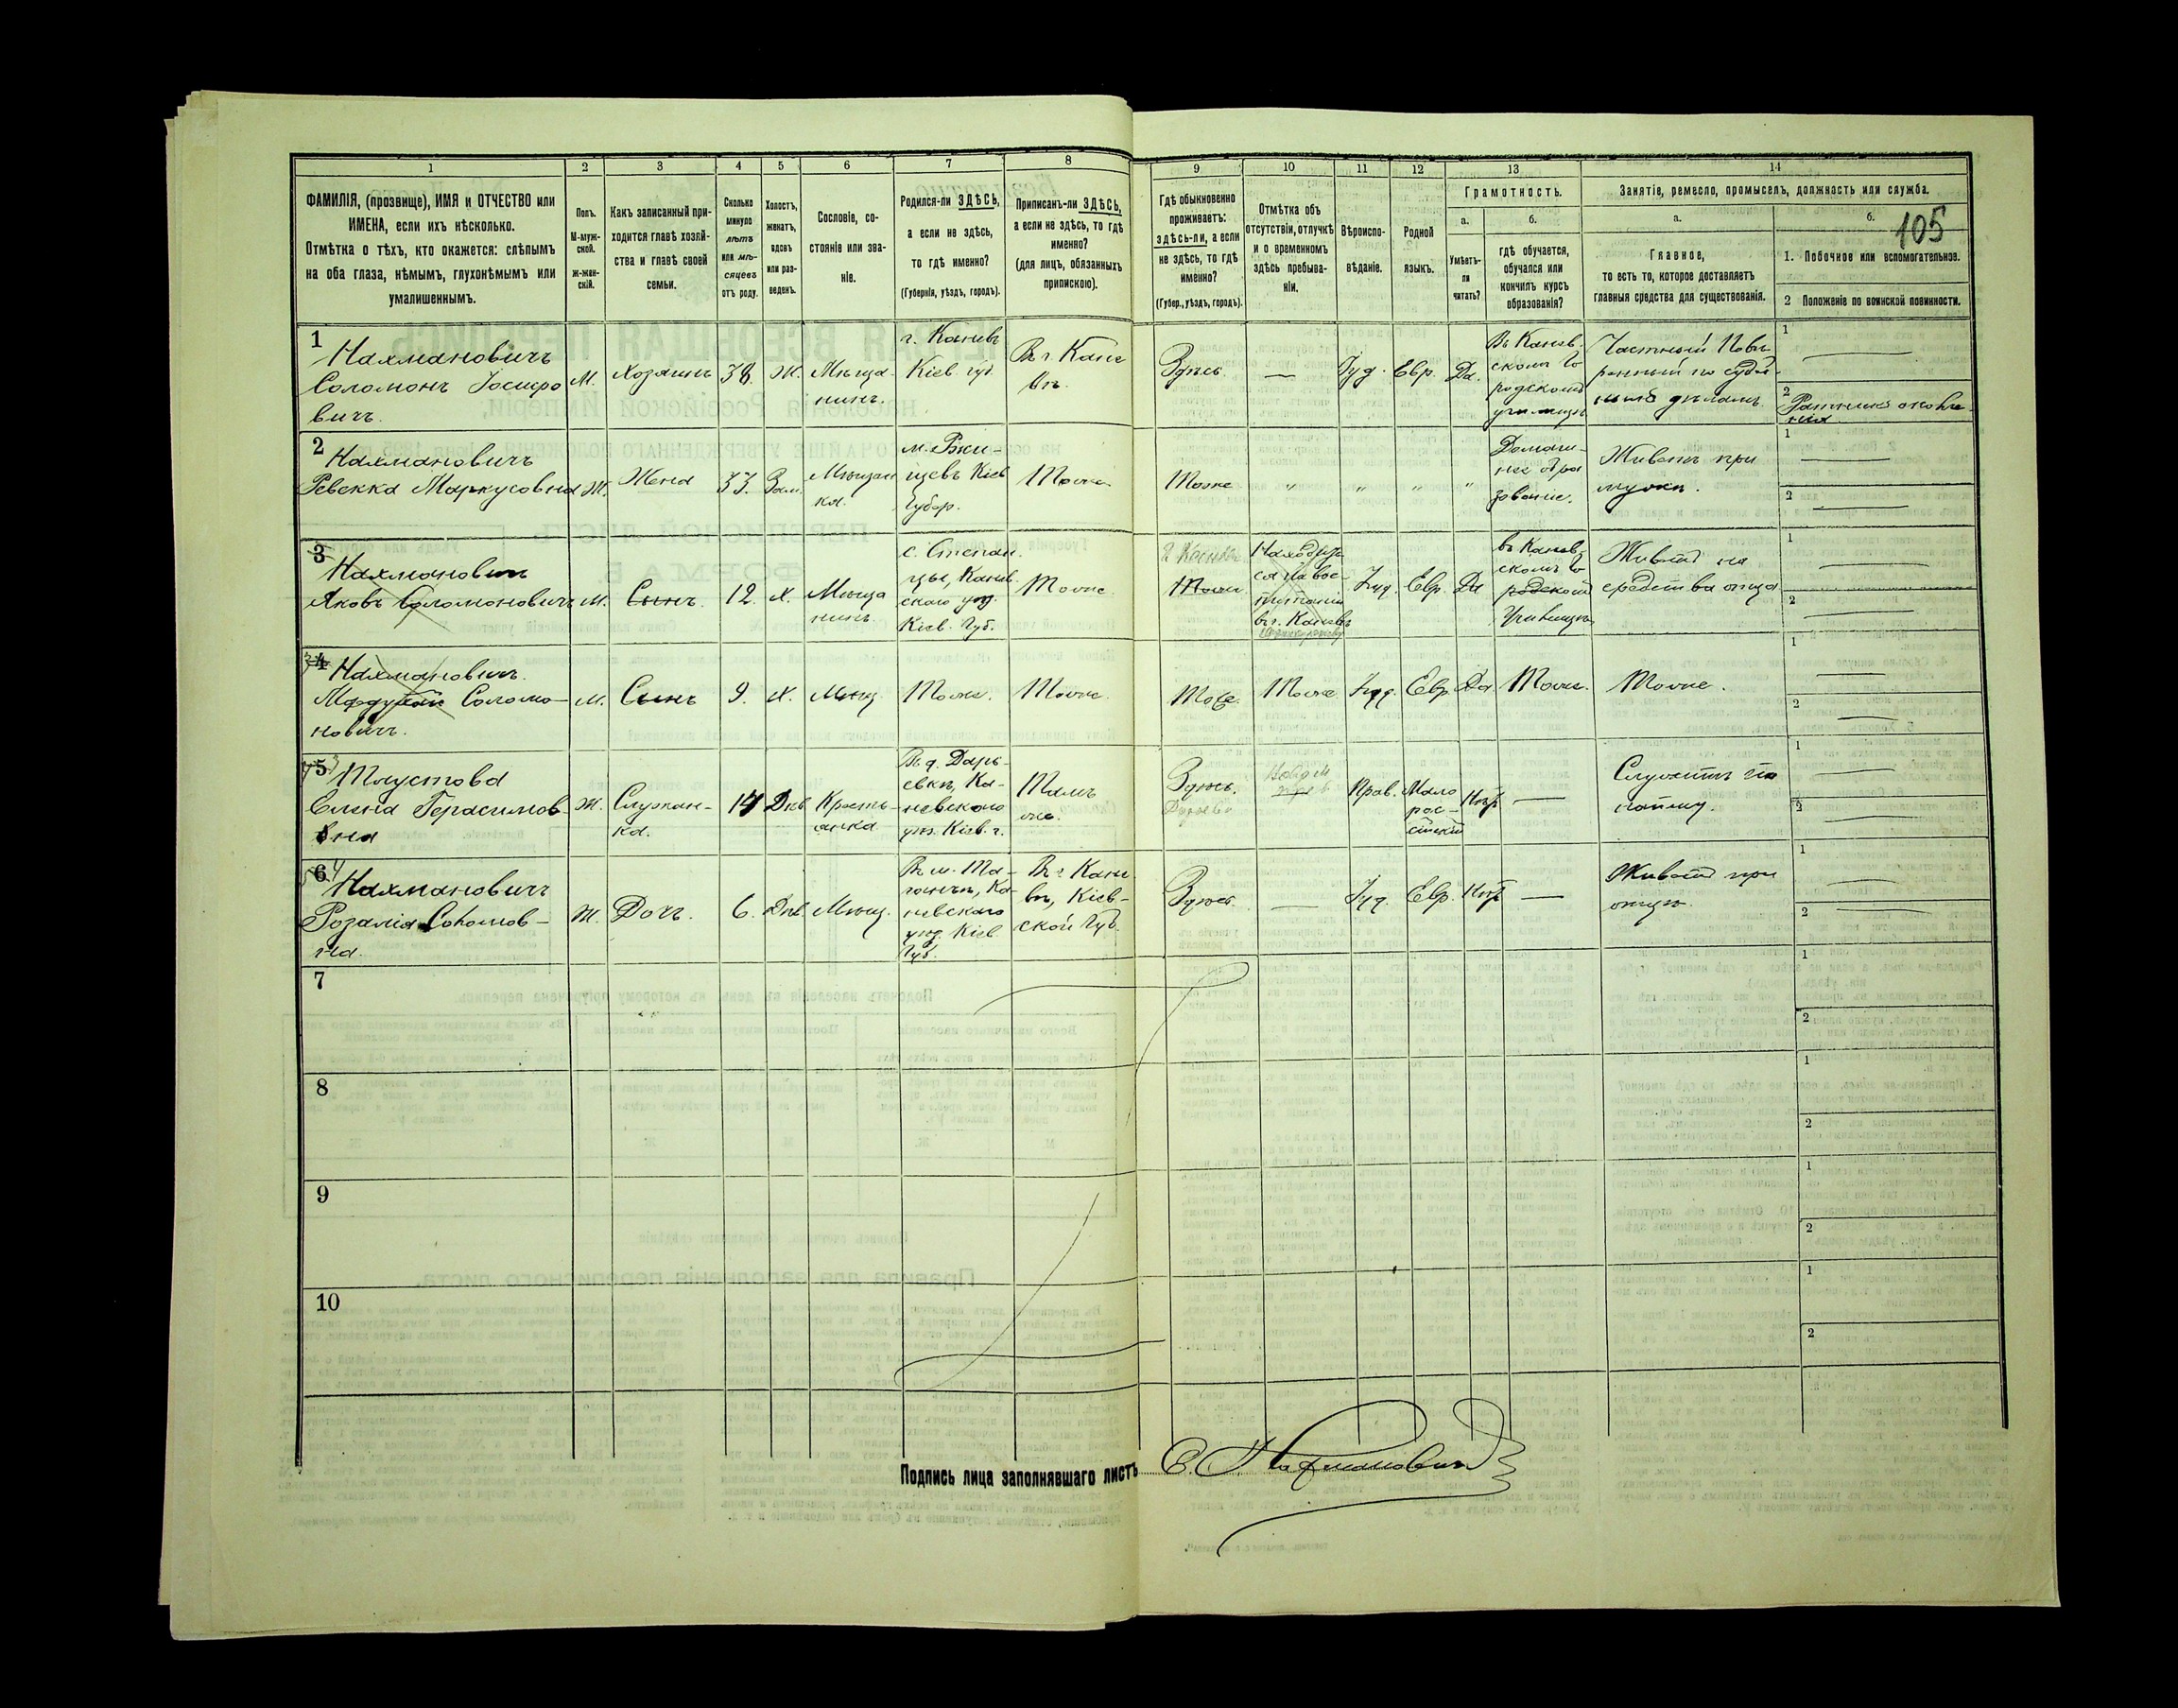 1 2 3 4 5 6 7 8 9 10 11 12 13 14
ФАМИЛІЯ, (прозвище), ИМЯ и ОТЧЕСТВО или
ИМЕНА, если ихъ нѣсколько.
Отмѣтка о тѣхъ, кто окажется: слѣпымъ
на оба глаза, нѣмымъ, глухонѣмымъ или
умалишеннымъ.
Полъ.
М-муж-
ской.
ж-жен-
скій.
Какъ записанный при-
ходится главѣ хозяй-
ства и главѣ своей
семьи.
Сколько
минуло
лѣтъ
или мѣ-
сяцевъ
отъ роду.
Холостъ,
женатъ,
вдовъ
или раз-
веденъ.
Сословіе, со-
стояніе или зва-
ніе.
Родился-ли ЗДѢСЬ,
а если не здѣсь,
то гдѣ именно?
(Губернія, уѣздъ, городъ).
Приписанъ-ли ЗДѢСЬ,
а если не здѣсь, то гдѣ
именно?
(для лицъ, обязанныхъ
припискою).
Гдѣ обыкновенно
проживаетъ:
здѣсь-ли, а если
не здѣсь, то гдѣ
именно?
(Губер., уѣздъ, городъ).
Отмѣтка объ
отсутствіи, отлучкѣ
и о временномъ
здѣсь пребыва-
ніи.
Вѣроиспо-
вѣданіе.
Родной
языкъ.
Грамотность.
а.
Умѣетъ-
ли
читать?
б.
гдѣ обучается,
обучался или
кончилъ курсъ
образованія?
Занятіе, ремесло, промыселъ, должность или служба.
а.
Главное,
то есть то, которое доставляетъ
главныя средства для существованія.
б.
105
1. Побочное или вспомогательное.
2 Положеніе по воинской повинности.
1
Нахмановичъ
Соломонъ Іосифо
вичъ.
М.
Хозяинъ
38.
Ж.
Мѣща-
нинъ.
г. Каневъ
Кіев. губ
Въ г. Кане
вѣ.
Здѣсь.
—
Іуд.
Евр.
Да.
Въ Канев.
скомъ Го
родскомъ
училищѣ
Частный Повѣ-
ренный по судеб-
нымъ дѣламъ.
1
2
2
Нахмановичъ
Ревекка Маркусовна
Ж.
Жена
33.
Зам.
Мѣщан
ка.
м. Ржи-
щевъ Кіев
Губер.
Тоже
Тоже
"
"
"
"
Домаш-
нее обра
зованіе.
Живетъ при
мужѣ.
1
2
3
Нахмановичъ
Яковъ Соломоновичъ
М.
Сынъ.
12.
Х.
Мѣща
нинъ.
с. Степан.
цы, Канев.
скаго уѣз.
Кіев. Губ.
Тоже.
г. Каневъ
Тоже
Находит-
ся на вос-
питаніи
въ г. Каневѣ
Іуд.
Евр.
Да
въ Канев-
скомъ Го
родскомъ
Училищѣ
Живетъ на
средства отца
1
2
4
Нахмановичъ.
Мордухай Соломо-
новичъ.
М.
Сынъ
9.
Х.
Мѣщ.
Тоже.
Тоже.
Тоже.
Тоже
Іуд.
Евр.
Да.
Тоже.
Тоже.
1
2
5
Толустова
Елена Герасимов-
вна
Ж.
Служан-
ка.
14
Дѣв.
Кресть-
янка
Въ д. Дарь-
евкѣ, Ка-
невского
уѣз. Кіев. г.
Тамъ
же.
Здѣсь.
Прав.
Мало
рос-
сійскій
Нѣтъ
—
Служитъ по
найму.
1
2
6
Нахмановичъ
Розалія Соломов-
на.
Ж.
Дочь.
6.
Дѣв.
Мѣщ.
Въ м. Та-
ганчѣ, Ка-
невскаго
уѣз. Кіев.
Губ.
Въ г. Кане
вѣ, Кіев-
ской Губ.
Здѣсь
—
Іуд.
Евр.
Нѣтъ
—
Живетъ при
отцѣ.
1
2
7
1
2
8
1
2
9
1
2
10
1
2
Подпись лица заполнявшаго листъ С. Нахмановичъ